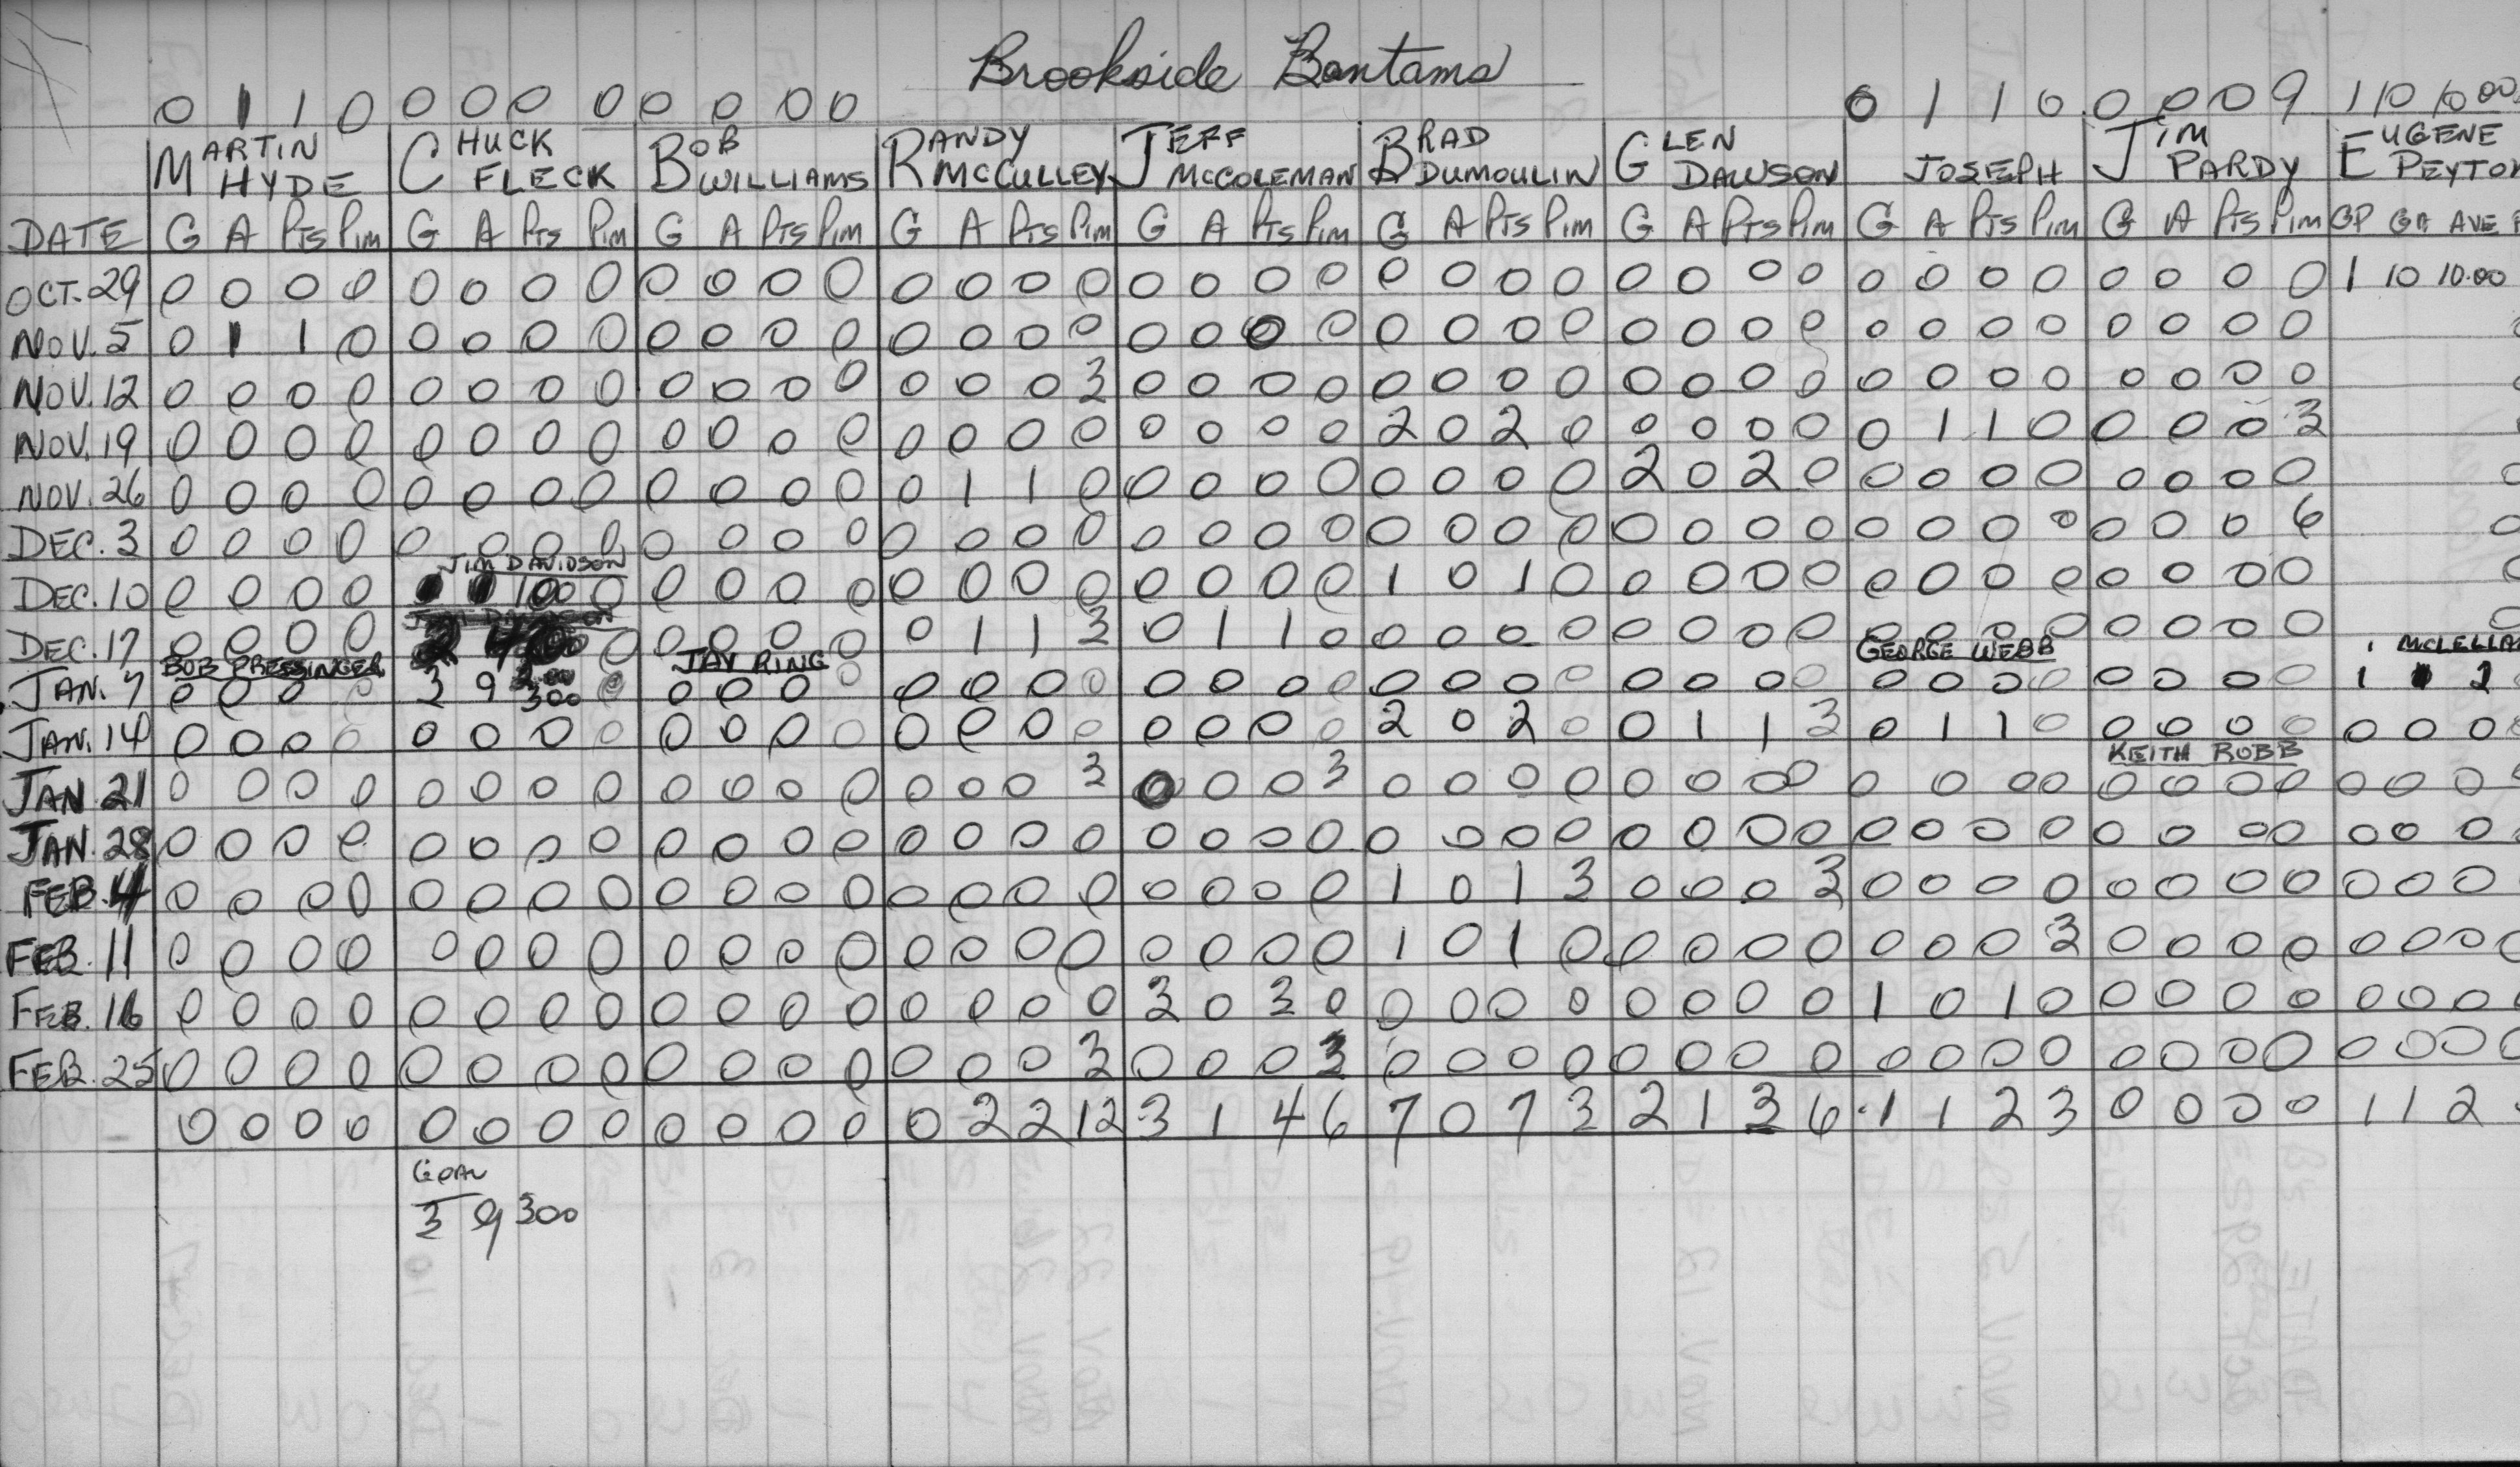 Brookside Bantams
0 1 1 0 0 0 0 0 0 0 0 0 0 1 1 0 0 0 0 9 1 10 10.00
MARTIN HYDE CHUCK FLECK BOB WILLIAMS RANDY MCCULLEY JEFF MCCOLEMAN BRAD DUMOULIN GLEN DAWSON JOSEPH JIM PARDY EUGENE PEYTON
DATE G A PTS PIM G A PTS PIM G A PTS PIM G A PTS PIM G A PTS PIM G A PTS PIM G A PTS PIM G A PTS PIM G A PTS PIM GP GA AVE
OCT. 29 0 0 0 0 0 0 0 0 0 0 0 0 0 0 0 0 0 0 0 0 0 0 0 0 0 0 0 0 0 0 0 0 0 0 0 0 1 10 10.00
NOV. 5 0 1 1 0 0 0 0 0 0 0 0 0 0 0 0 0 0 0 0 0 0 0 0 0 0 0 0 0 0 0 0 0 0 0 0 0
NOV. 12 0 0 0 0 0 0 0 0 0 0 0 0 0 0 0 3 0 0 0 0 0 0 0 0 0 0 0 0 0 0 0 0 0 0 0 0
NOV. 19 0 0 0 0 0 0 0 0 0 0 0 0 0 0 0 0 0 0 0 0 2 0 2 0 0 0 0 0 0 1 1 0 0 0 0 3
NOV. 26 0 0 0 0 0 0 0 0 0 0 0 0 0 1 1 0 0 0 0 0 0 0 0 0 2 0 2 0 0 0 0 0 0 0 0 0
DEC. 3 0 0 0 0 0 0 0 0 0 0 0 0 0 0 0 0 0 0 0 0 0 0 0 0 0 0 0 0 0 0 0 0 0 0 0 6
JIM DAVIDSON
DEC. 10 0 0 0 0 0 0 0 0 0 0 0 0 0 0 0 0 0 1 0 1 0 0 0 0 0 0 0 0 0 0 0 0 0
DEC. 17 0 0 0 0 0 0 0 0 0 0 1 1 3 0 1 1 0 0 0 0 0 0 0 0 0 0 0 0 0 0 0 0 0
BOB PRESSINGER JAY RING GEORGE WEBB MCLELLA
JAN. 7 0 0 0 0 3 9 300 0 0 0 0 0 0 0 0 0 0 0 0 0 0 0 0 0 0 0 0 0 0 0 0 0 0 0 0 0 1 1 2
JAN. 14 0 0 0 0 0 0 0 0 0 0 0 0 0 0 0 0 0 0 0 0 2 0 2 0 0 1 1 3 0 1 1 0 0 0 0 0 0 0 0
KEITH ROBB
JAN 21 0 0 0 0 0 0 0 0 0 0 0 0 0 0 0 3 0 0 0 3 0 0 0 0 0 0 0 0 0 0 0 0 0 0 0 0 0 0 0
JAN. 28 0 0 0 0 0 0 0 0 0 0 0 0 0 0 0 0 0 0 0 0 0 0 0 0 0 0 0 0 0 0 0 0 0 0 0 0 0 0 0
FEB. 4 0 0 0 0 0 0 0 0 0 0 0 0 0 0 0 0 0 0 0 0 1 0 1 3 0 0 0 3 0 0 0 0 0 0 0 0 0 0 0
FEB. 11 0 0 0 0 0 0 0 0 0 0 0 0 0 0 0 0 0 0 0 0 1 0 1 0 0 0 0 0 0 0 0 3 0 0 0 0 0 0 0 0
FEB. 16 0 0 0 0 0 0 0 0 0 0 0 0 0 0 0 0 3 0 3 0 0 0 0 0 0 0 0 0 1 0 1 0 0 0 0 0 0 0 0
FEB. 25 0 0 0 0 0 0 0 0 0 0 0 0 0 0 0 3 0 0 0 3 0 0 0 0 0 0 0 0 0 0 0 0 0 0 0 0 0 0 0 0
0 0 0 0 0 0 0 0 0 0 0 0 0 2 2 12 3 1 4 6 7 0 7 3 2 1 3 6 1 1 2 3 0 0 0 0 1 1 2
GOAL
3 9 300